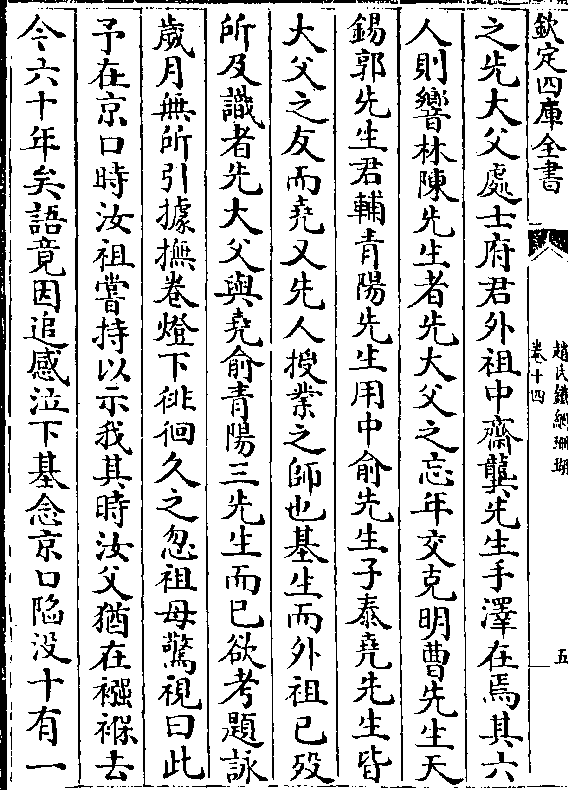 欽定四庫全書
趙氏鐵網珊瑚
卷十四
五
之先大父處士府君外祖中齋龔先生手澤在焉其六
人則響林陳先生者先大父之忘年交克明曹先生天
錫郭先生君輔青陽先生用中俞先生子泰堯先生皆
大父之友而堯又先人授業之師也基生而外祖已歿
所及識者先大父與堯俞青陽三先生而已欲考題詠
歲月無所引據撫卷燈下徘徊久之忽祖母驚視曰此
予在京口時汝祖嘗持以示我其時汝父猶在襁褓去
今六十年矣語竟因追感泣下基念京口陷没十有一